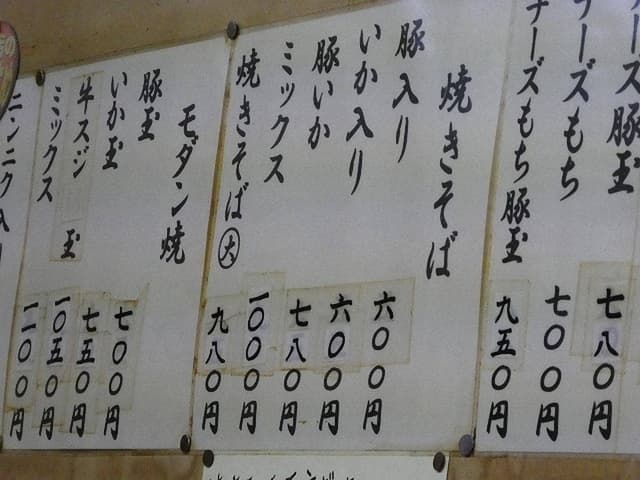 ーズ豚玉 七八〇円
チーズもち 七〇〇円
チーズもち豚玉 九五〇円
焼きそば
豚入り 六〇〇円
いか入り 六〇〇円
豚いか 七八〇円
ミックス 一〇〇〇円
焼きそば㊅ 九八〇円
モダン焼
豚玉 七〇〇円
いか玉 七五〇円
牛スジ玉 一〇五〇円
ミックス 一一〇〇円
ニンニク入り